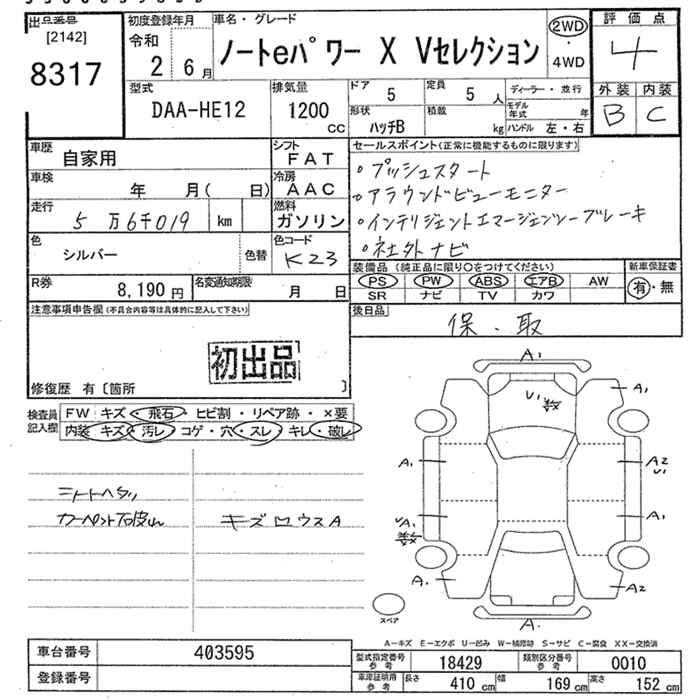 出品番号
[2142]
8317
初度登録年月
令和
2 6月
車名・グレード
ノートeパワー X Vセレクション
2WD
・
4WD
評価点
4
外装 内装
B C
型式
DAA-HE12
排気量
1200
CC
ドア 5
定員 5 人
形状 ハッチB
積載 kg
ディーラー・並行
モデル年式 年
ハンドル 左・右
車歴 自家用
シフト FAT
車検 年 月( 日)
冷房 AAC
走行 5万6千019 km
燃料 ガソリン
色 シルバー 色替
色コード K23
R券 8,190円
名変通知期限 月 日
セールスポイント(正常に機能するものに限ります)
・プッシュスタート
・アラウンドビューモニター
・インテリジェントエマージェンシーブレーキ
・社外ナビ
装備品(純正品に限り○をつけてください)
PS PW ABS エアB AW
SR ナビ TV カワ
新車保証書
有・無
後日品
保、取
注意事項申告欄(不具合内容等は具体的に記入して下さい)
初出品
修復歴 有〔箇所 〕
検査員記入欄
FW キズ・飛石・ヒビ割・リペア跡・×要
内装 キズ・汚レ・コゲ・穴・スレ・キレ・破レ
キズ
A1
U1
A1
A1
A2
U1
A1
A1
A1
A2
A1
スペア
A-キズ E-エクボ U-凹み W-補修跡 S-サビ C-腐食 XX-交換済
車台番号 403595
登録番号
型式指定番号 参考 18429
類別区分番号 参考 0010
車庫証明用 参考
長さ 410 cm
幅 169 cm
高さ 152 cm